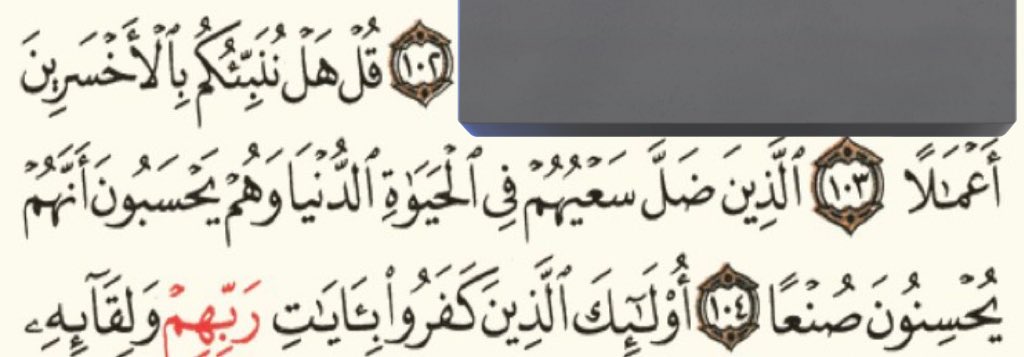 ١٠٢ قُلْ هَلْ نُنَبِّئُكُم بِٱلْأَخْسَرِينَ
أَعْمَـٰلًا ١٠٣ ٱلَّذِينَ ضَلَّ سَعْيُهُمْ فِى ٱلْحَيَوٰةِ ٱلدُّنْيَا وَهُمْ يَحْسَبُونَ أَنَّهُمْ
يُحْسِنُونَ صُنْعًا ١٠٤ أُو۟لَـٰٓئِكَ ٱلَّذِينَ كَفَرُوا۟ بِـَٔايَـٰتِ رَبِّهِمْ وَلِقَآئِهِۦ